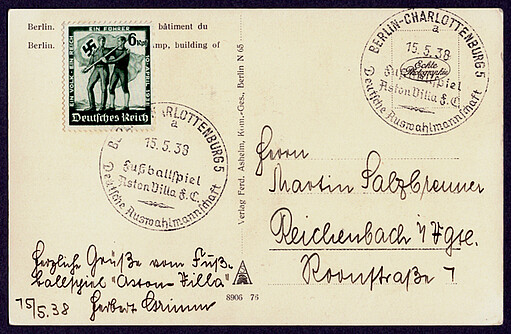 Berlin. bâtiment du
Berlin. mp, building of
EIN VOLK · EIN REICH
EIN FÜHRER
10. APRIL 1938
6 Rpf
Deutsches Reich
CHARLOTTENBURG 5
a
15.5.38
Fußballspiel
Aston Villa F.C.
Deutsche Auswahlmannschaft
BERLIN-CHARLOTTENBURG 5
a
15.5.38
Echte
Photographie
Fußballspiel
Aston Villa F.C.
Deutsche Auswahlmannschaft
Verlag Ferd. Ashelm, Kom.-Ges., Berlin N 65
Herrn
Martin Salzbrenner
Reichenbach i/Vgtl.
Roonstraße 7
Herzliche Grüße vom Fuß-
ballspiel "Aston-Villa"
15/5.38 Herbert Grimm
A
8906 76